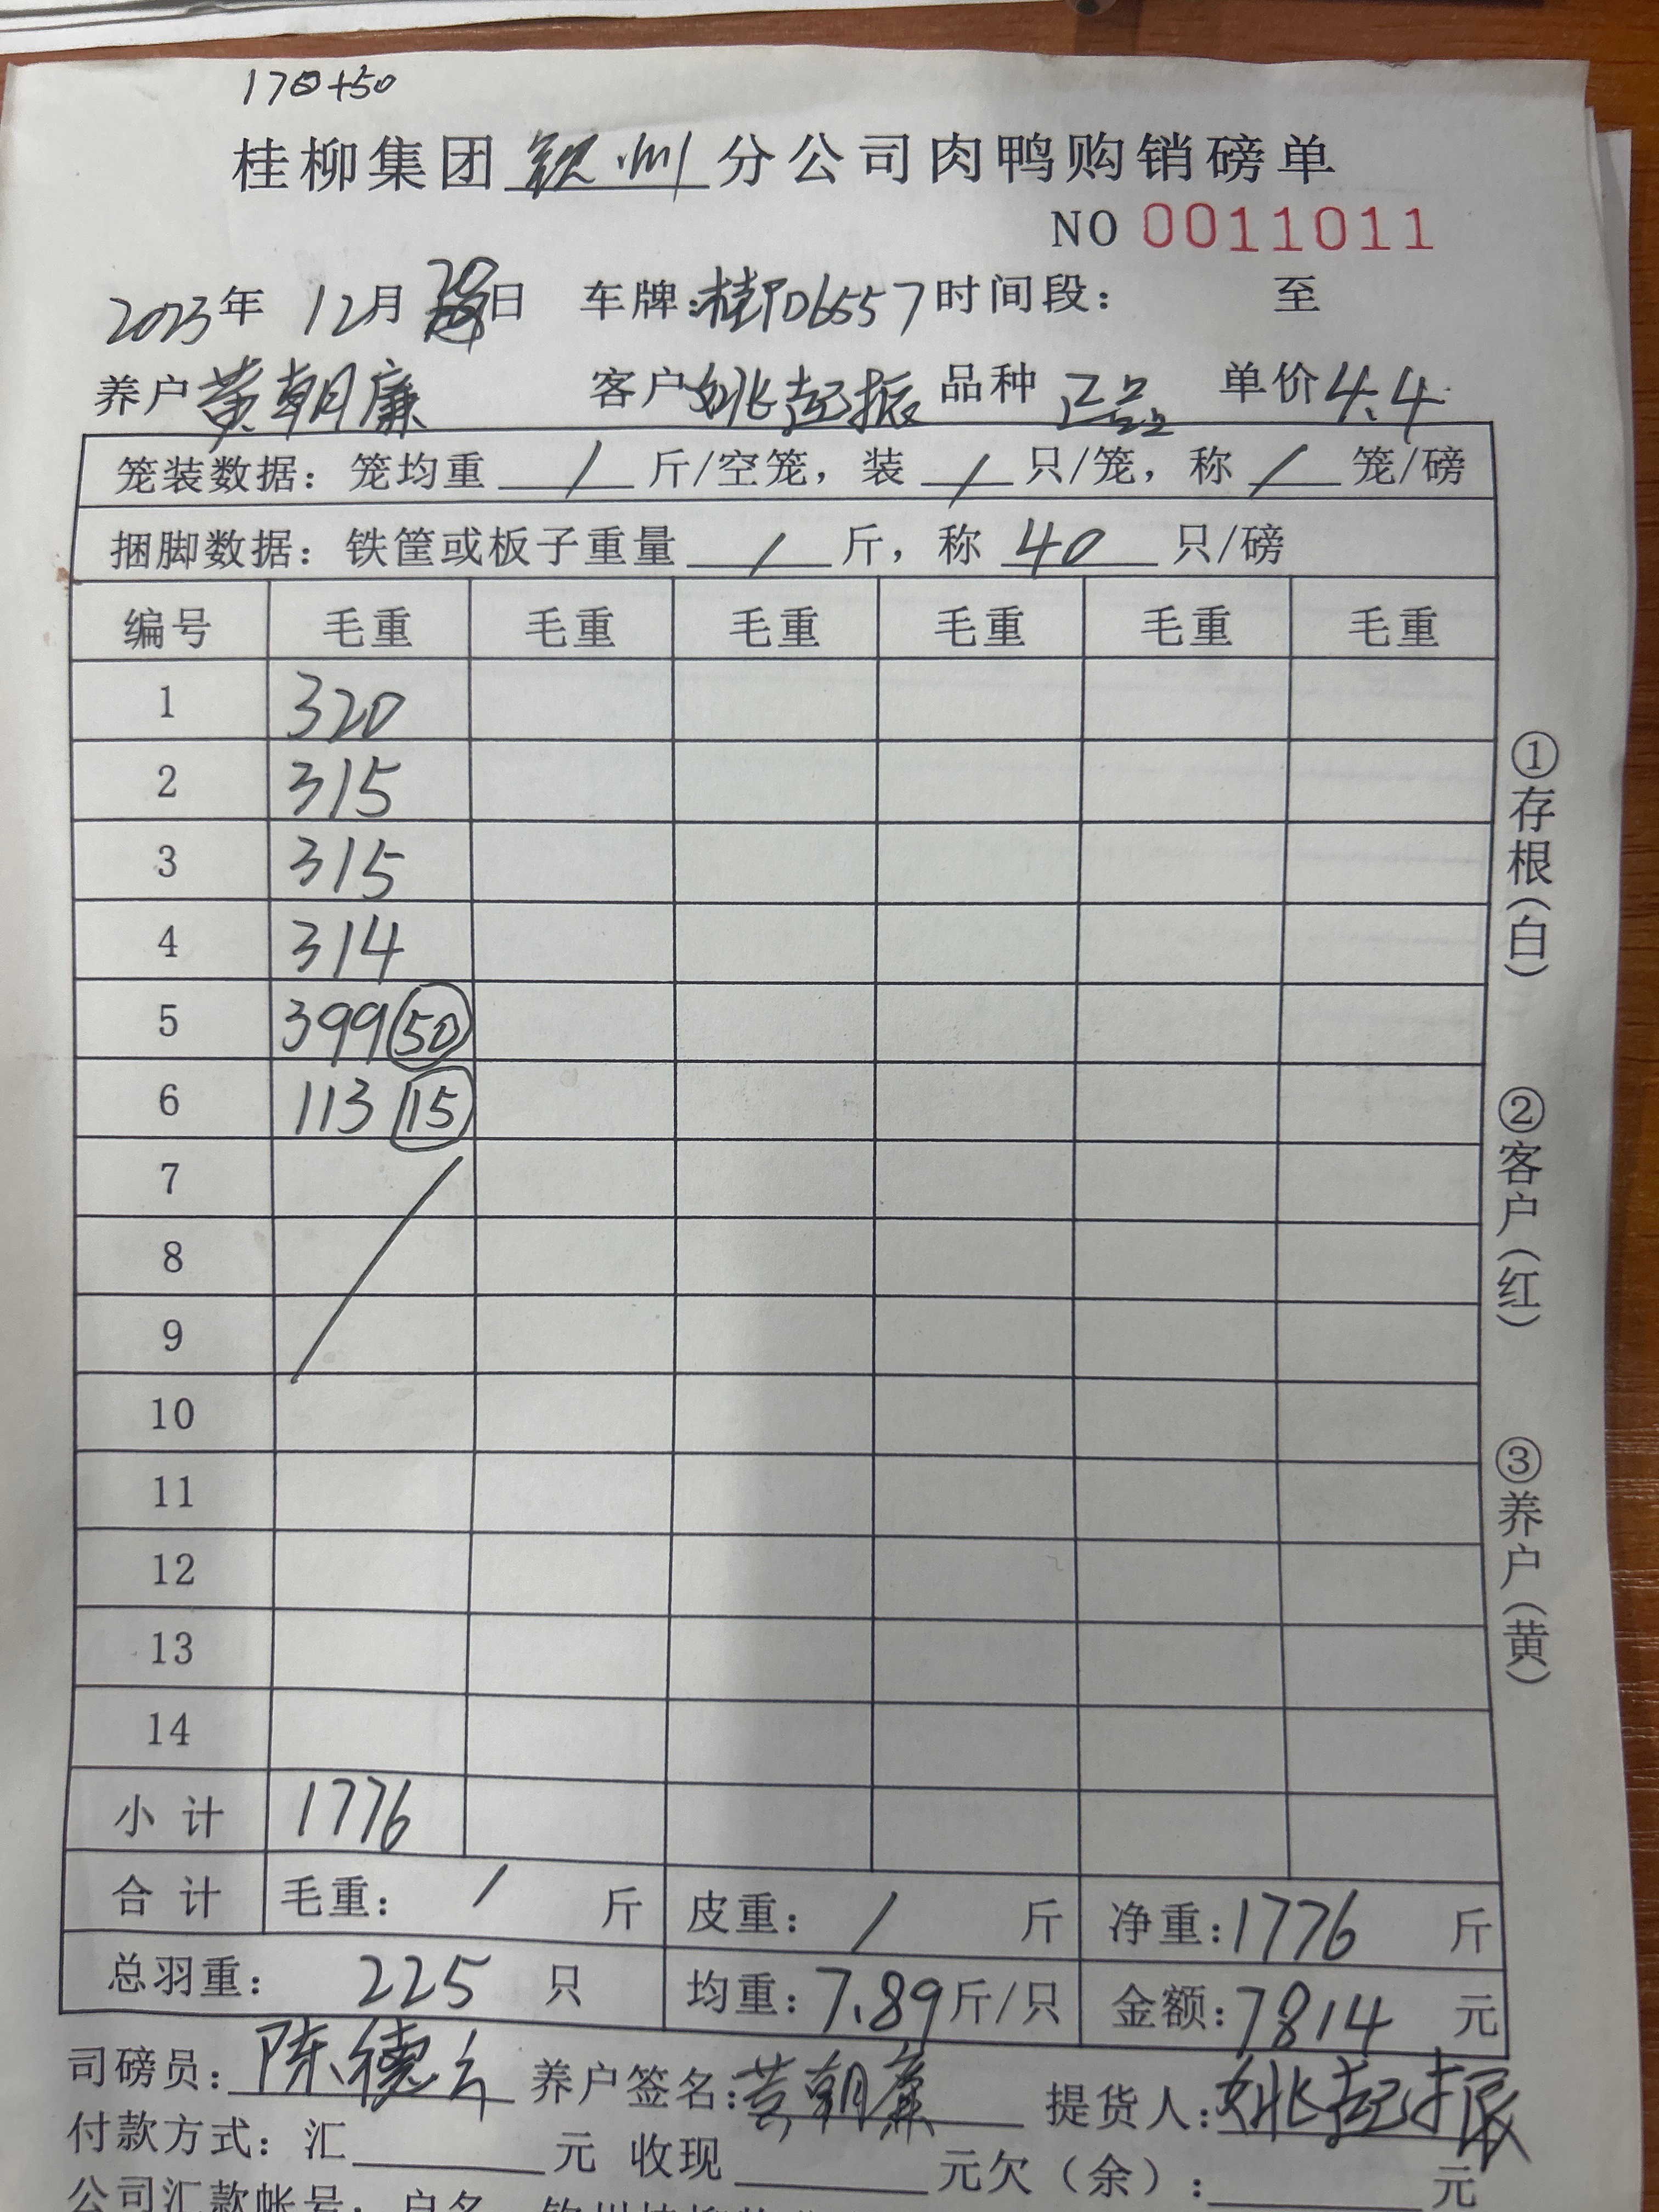 17 +50
桂柳集团 钦州 分公司肉鸭购销磅单
NO 0011011
2023年 12月 28日 车牌:桂PD6557 时间段: 至
养户 黄朝廉 客户 姚起振 品种 正品 单价 4.4
笼装数据:笼均重 / 斤/空笼,装 / 只/笼,称 / 笼/磅
捆脚数据:铁筐或板子重量 / 斤,称 40 只/磅
编号 毛重 毛重 毛重 毛重 毛重 毛重
1 320
2 315
3 315
4 314
5 399 50
6 113 15
7
8
9
10
11
12
13
14
小计 1776
合计 毛重: / 斤 皮重: / 斤 净重:1776 斤
总羽重: 225 只 均重:7.89斤/只 金额:7814 元
①存根(白) ②客户(红) ③养户(黄)
司磅员:陈德云 养户签名:黄朝廉 提货人:姚起振
付款方式:汇 元 收现 元欠(余): 元
公司汇款帐号:户名